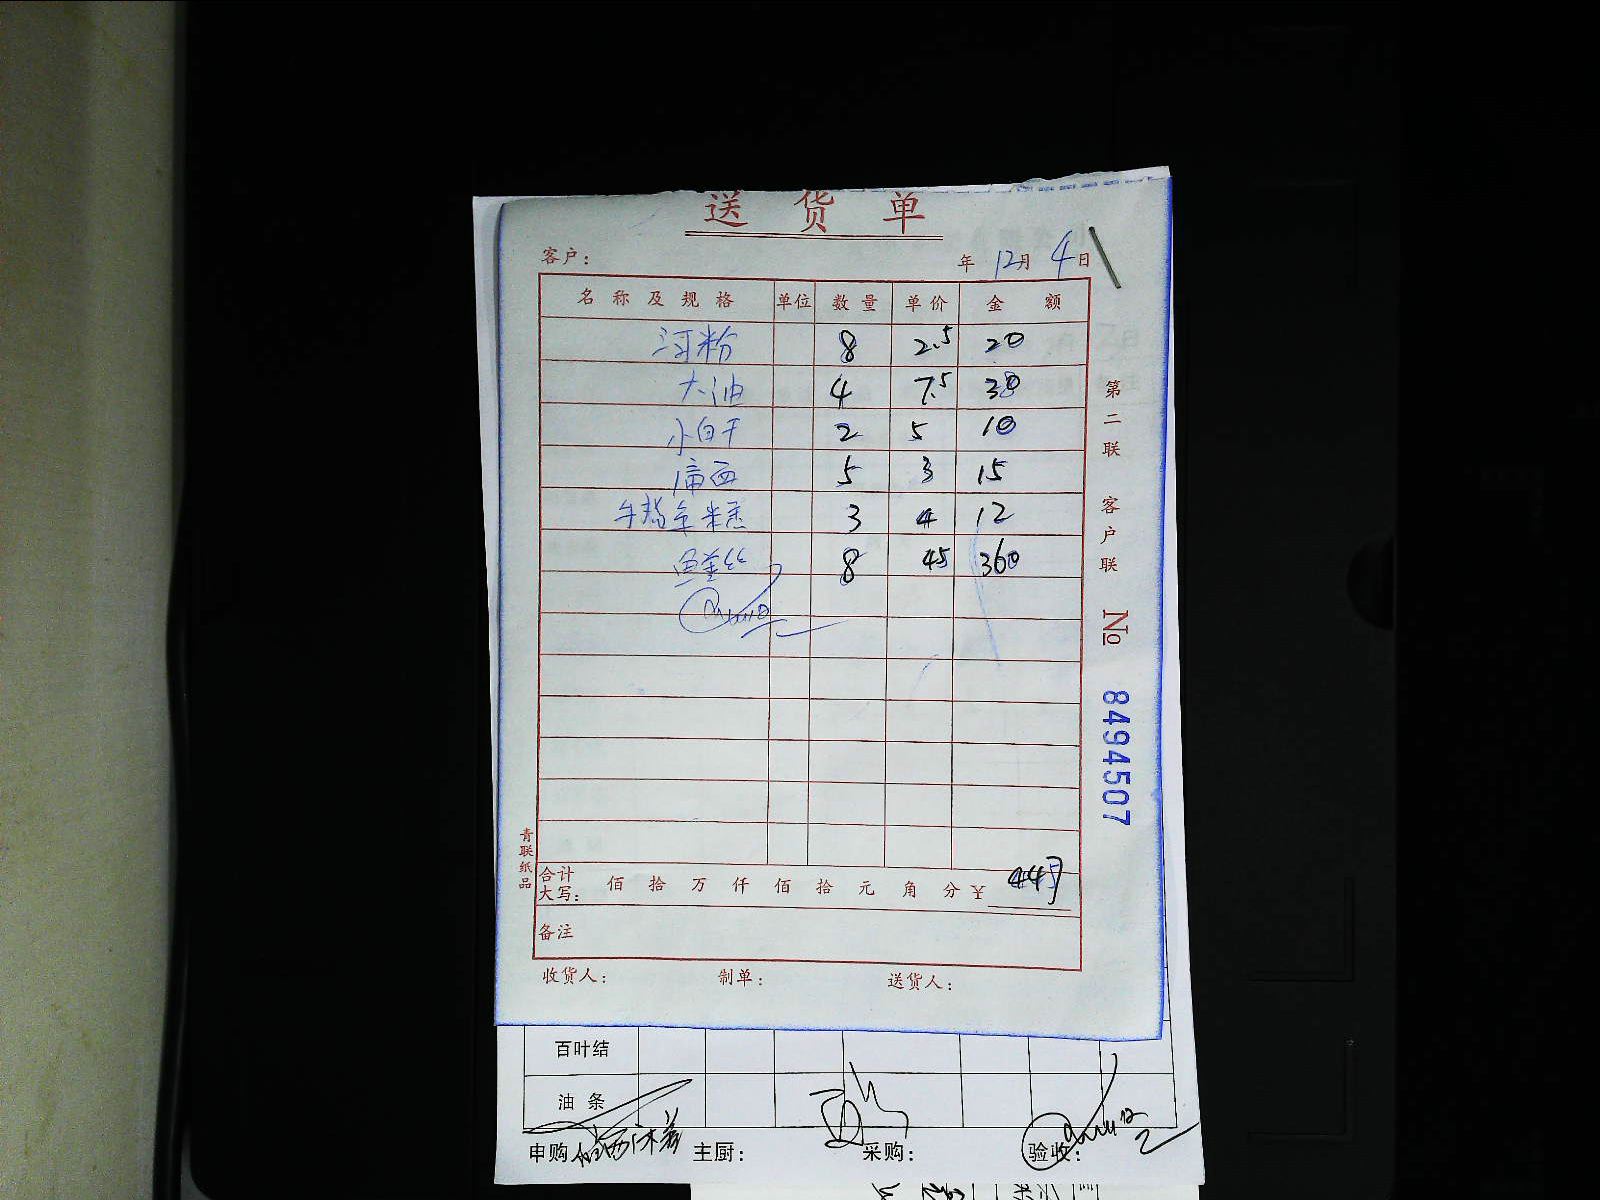 送货单
客户： 年 12月 4日
名称及规格 单位 数量 单价 金额
河粉 8 2.5 20
大油 4 7.5 30
小白干 2 5 10
5 3 15
3 4 12
8 45 360
合计大写： 佰 拾 万 仟 佰 拾 元 角 分 ¥ 447
备注
收货人： 制单： 送货人：
第二联 客户联 № 8494507
青联纸品
百叶结
油条
申购 主厨： 采购： 验收：